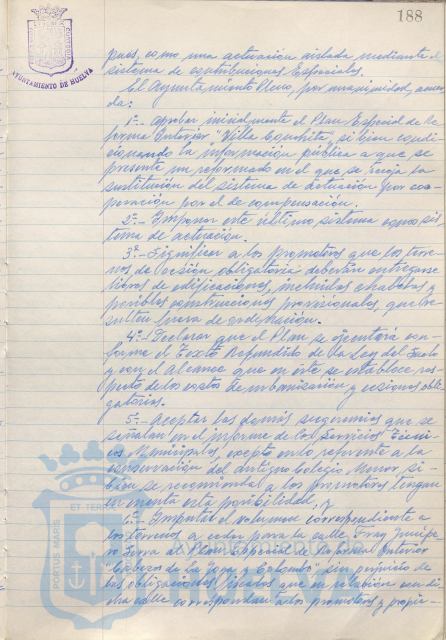 188
AYUNTAMIENTO DE HUELVA
pues, como una actuación aislada mediante el
sistema de contribuciones Especiales.
El Ayuntamiento Pleno, por unanimidad, acuer-
da:
1º.- Aprobar inicialmente el Plan Especial de Re-
forma Interior "Villa Conchita", si bien condi-
cionando la información pública a que se
presente un reformado en el que se recoja la
sustitución del sistema de actuación por coo-
peración por el de compensación.
2º.- Imponer este último sistema como sis-
tema de actuación.
3º.- Significar a los promotores que los terre-
nos de cesión obligatoria deberán entregarse
libres de edificaciones, incluidas chabolas y
posibles construcciones provisionales, que re-
sulten fuera de ordenación.
4º.- Declarar que el Plan se ejecutará con-
forme al Texto Refundido de la Ley del Suelo
y con el alcance que en éste se establece res-
pecto de los costos de urbanización y cesiones obli-
gatorias.
5º.- Aceptar las demás sugerencias que se
señalan en el informe de los Servicios Técni-
cos Municipales, excepto en lo referente a la
conservación del antiguo Colegio Menor, si
bien se recomienda a los promotores tengan
en cuenta esta posibilidad, y
6º.- Imputar el volumen correspondiente a
los terrenos a ceder para la calle Fray Junípe-
ro Serra al Plan Especial de Reforma Interior
"Cabezo de La Joya y Colombo" sin perjuicio de
las obligaciones fiscales que en relación con di-
cha calle correspondan a los promotores y propie-
PORTUS MARIS
ET TERRAE